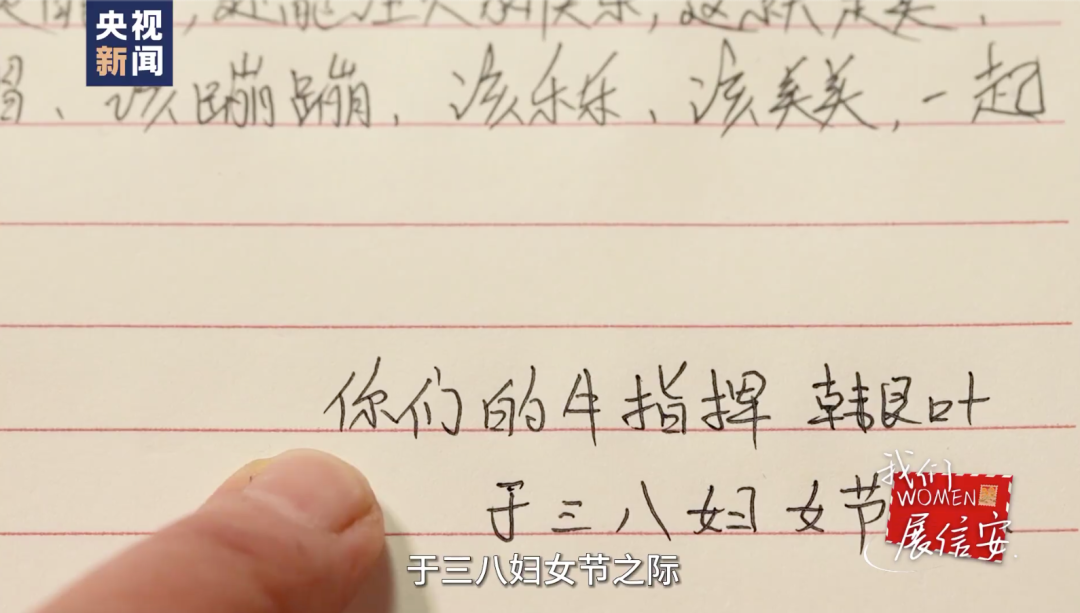 央视
新闻
还能
该蹦蹦,该乐乐、该美美,一起
你们的牛指挥 韩良叶
于三八妇女节
我们
WOMEN
展信安
于三八妇女节之际